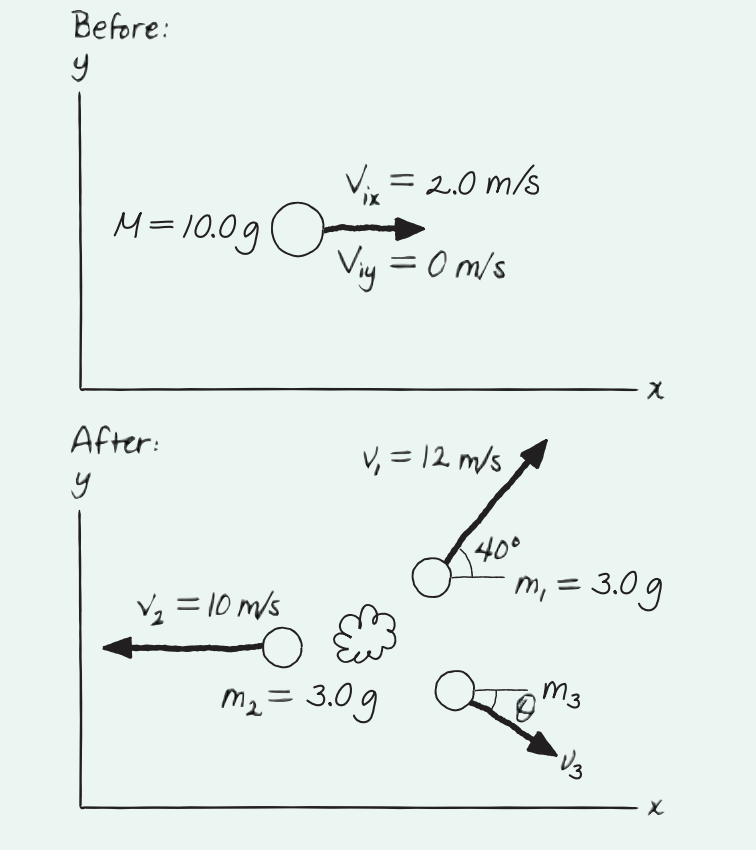 Before:
y
V_ix = 2.0 m/s
M = 10.0 g
V_iy = 0 m/s
x
After:
y
v_1 = 12 m/s
40°
m_1 = 3.0 g
v_2 = 10 m/s
m_2 = 3.0 g
m_3
θ
v_3
x